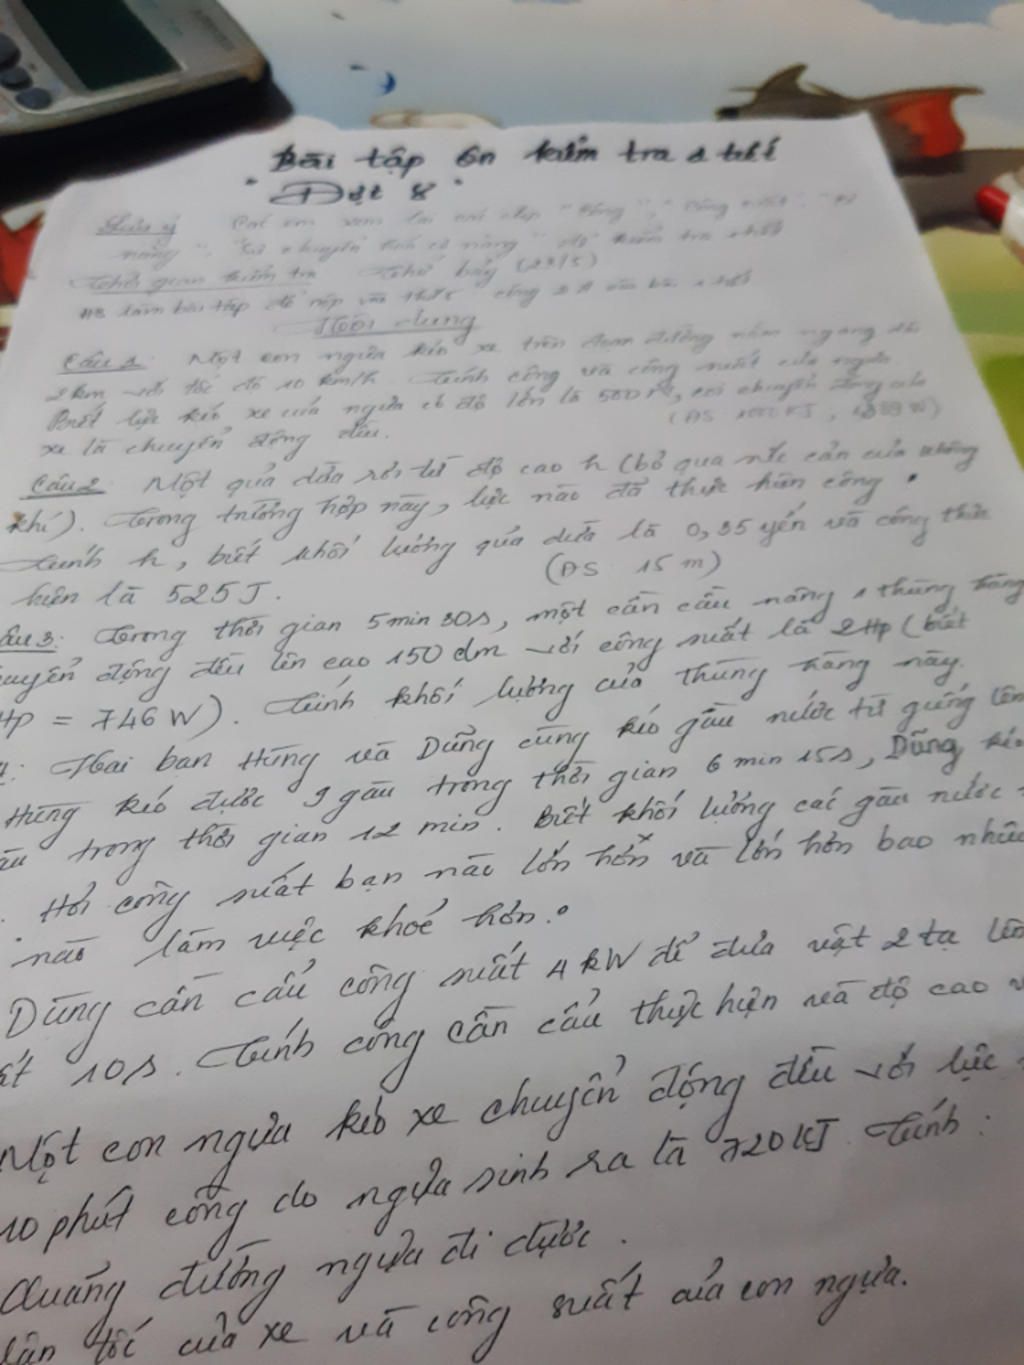 Bài tập ôn kiểm tra 1 tiết
Đợt 8
Lưu ý Các em xem lại các "Công", "Công suất",
năng", "Sự chuyển cơ năng" để kiểm tra 1 tiết
Thời gian kiểm tra Thứ bảy (23/5)
HS làm bài tập để nộp vào thứ
Nội dung
Câu 1: Một con ngựa kéo xe trên đoạn đường nằm ngang dài
2 km với tốc độ 10 km/h. Tính công và công suất của ngựa.
Biết lực kéo xe của ngựa có độ lớn là 500 N, coi chuyển động của
xe là chuyển động đều. (ĐS 1000 KJ, 1389 W)
Câu 2: Một quả dừa rơi từ độ cao h (bỏ qua sức cản của không
khí). Trong trường hợp này, lực nào đã thực hiện công.
Tính h, biết khối lượng quả dừa là 0,35 yến và công thực
hiện là 525J. (ĐS 15 m)
âu 3: Trong thời gian 5min 30s, một cần cẩu nâng 1 thùng hàng
uyển động đều lên cao 150 dm với công suất là 2Hp (biết
Hp = 746 W). Tính khối lượng của thùng hàng này.
: Hai bạn Hùng và Dũng cùng kéo gầu nước từ giếng lên
Hùng kéo được 9 gầu trong thời gian 6 min 15s, Dũng kéo
ầu trong thời gian 12 min. Biết khối lượng các gầu nước
. Hỏi công suất bạn nào lớn hơn và lớn hơn bao nhiêu
nào làm việc khoẻ hơn.
Dùng cần cẩu công suất 4 kW để đưa vật 2 tạ lên
ất 10s. Tính công cần cẩu thực hiện và độ cao
Một con ngựa kéo xe chuyển động đều với lực
10 phút công do ngựa sinh ra là 720 KJ. Tính:
Quãng đường ngựa đi được.
ận tốc của xe và công suất của con ngựa.